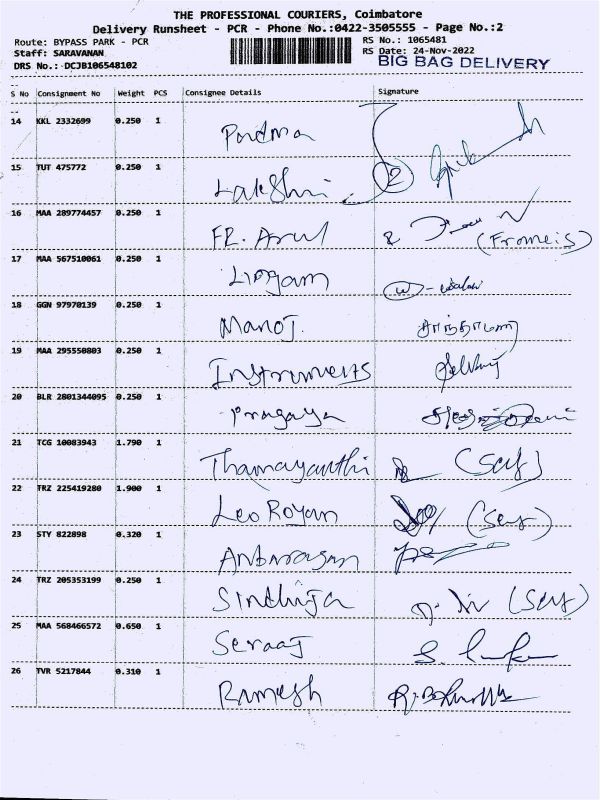 THE PROFESSIONAL COURIERS, Coimbatore
Delivery Runsheet - PCR - Phone No.:0422-3505555 - Page No.:2
Route: BYPASS PARK - PCR RS No.: 1065481
Staff: SARAVANAN RS Date: 24-Nov-2022
DRS No.: DCJB106548102 BIG BAG DELIVERY
S No Consignment No Weight PCS Consignee Details Signature
14 KKL 2332699 0.250 1
15 TUT 475772 0.250 1 Lakshmi 2
16 MAA 289774457 0.250 1 FR. Arul (Fromeis)
17 MAA 567510061 0.250 1 Lingam
18 GGN 97970139 0.250 1 Manoj
19 MAA 295550803 0.250 1 Instruments
20 BLR 2801344095 0.250 1 Pragaya
21 TCG 10083943 1.790 1 Thamayanthi (Self)
22 TRZ 225419280 1.900 1 Leo Royan (Self)
23 STY 822898 0.320 1 Anbarasan
24 TRZ 205353199 0.250 1 Sindhija (Self)
25 MAA 568466572 0.650 1 Seraaj
26 TVR 5217844 0.310 1 Ramesh